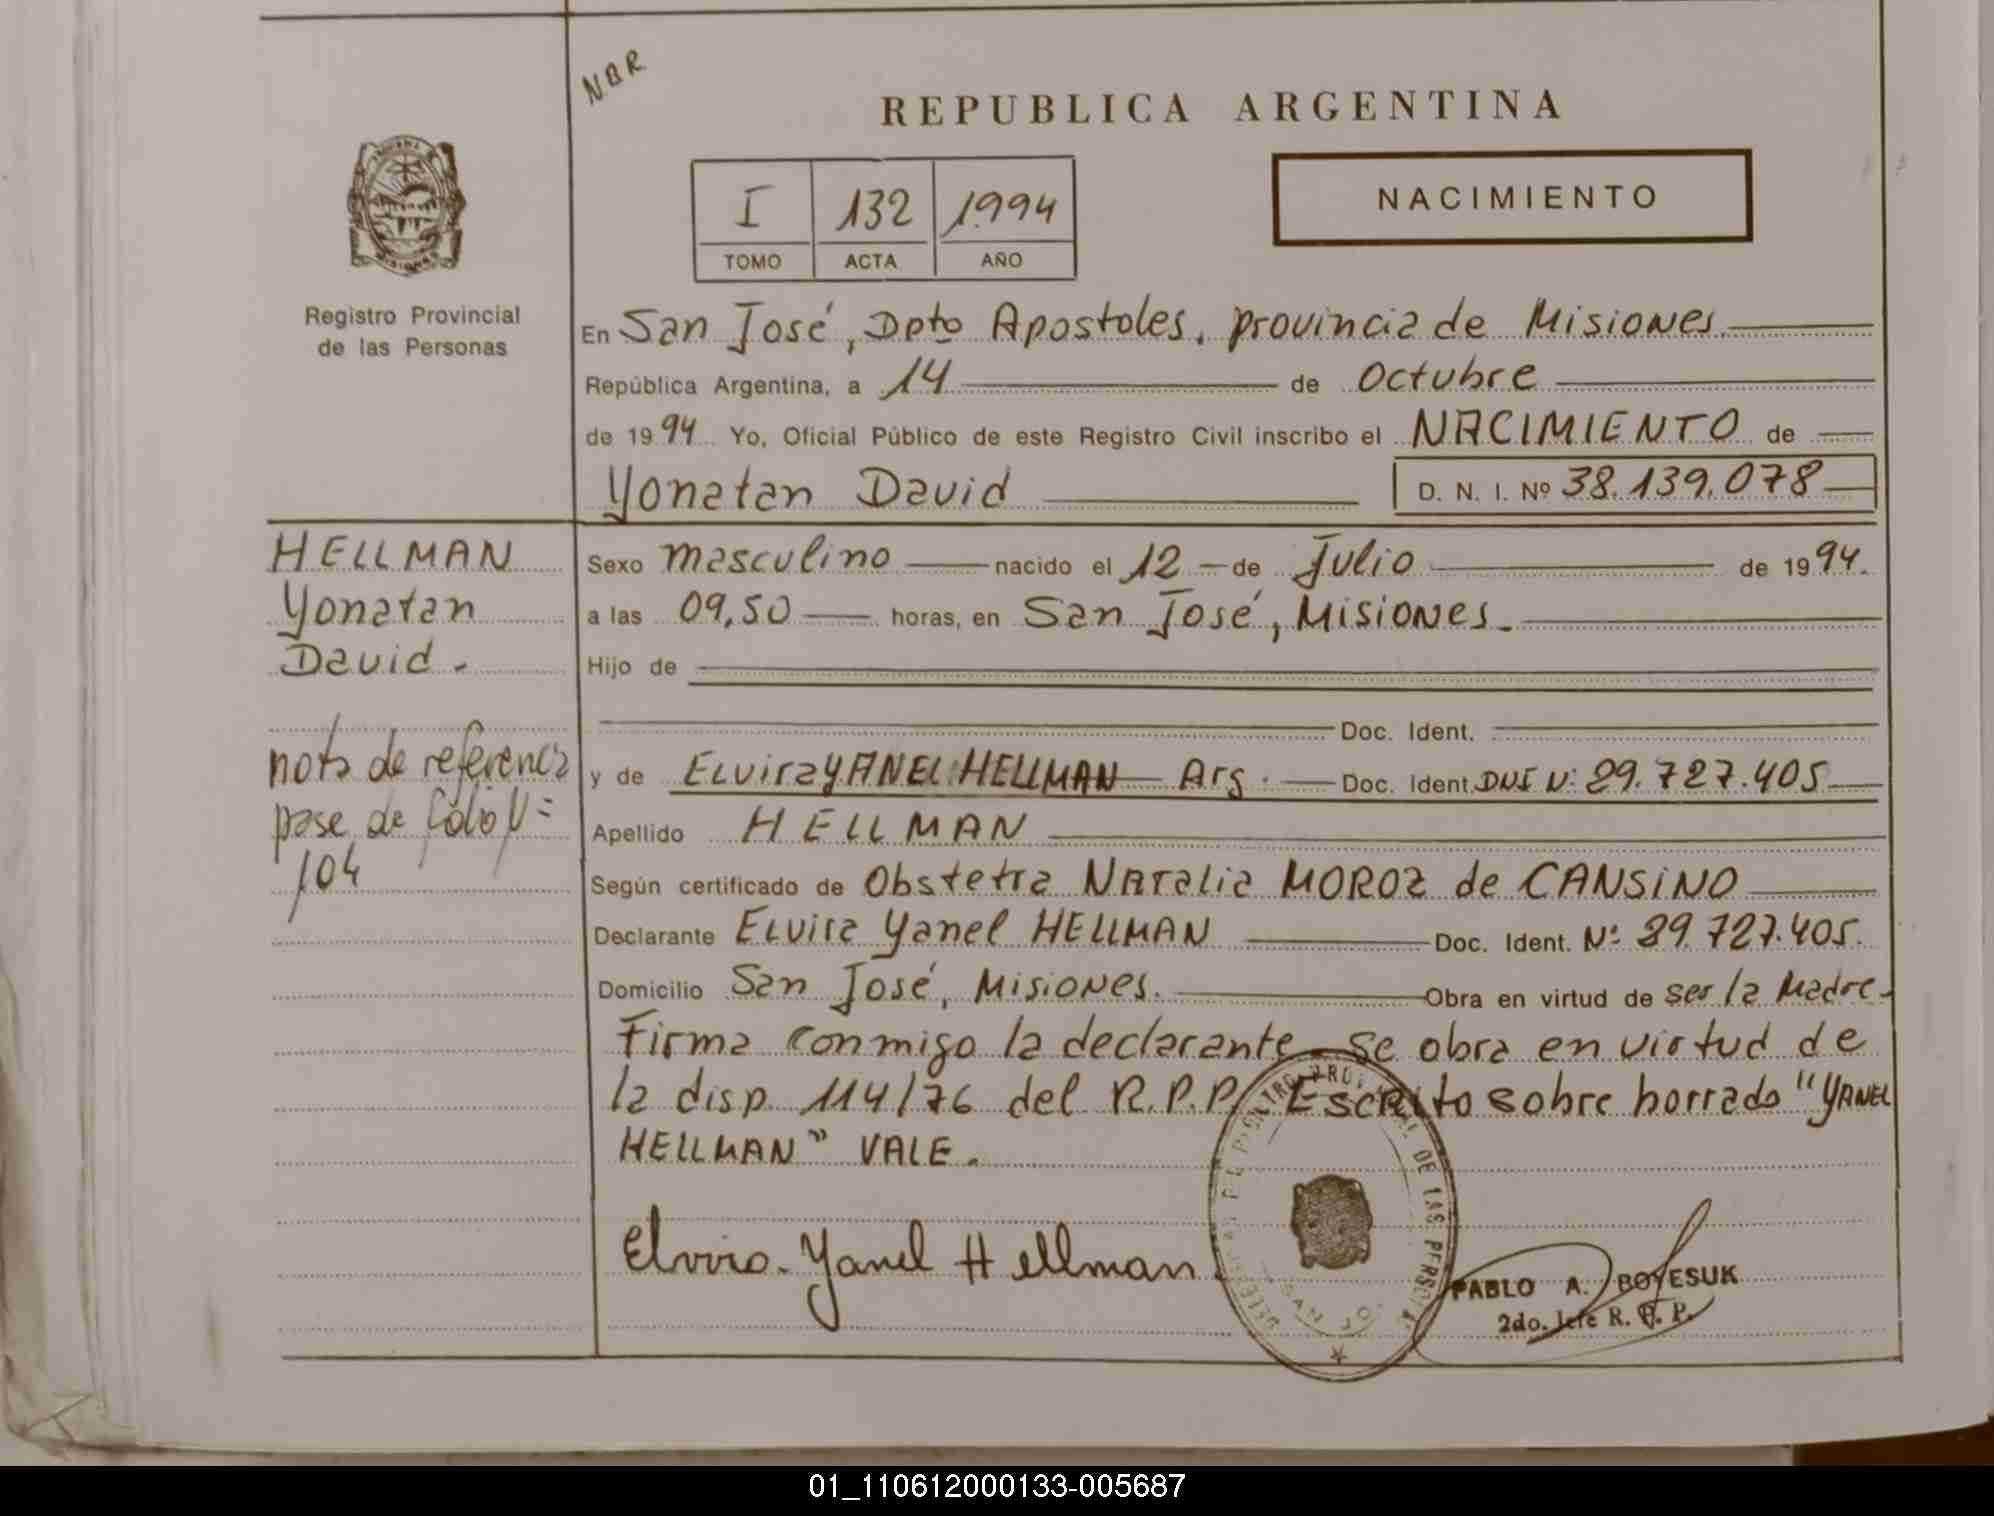 NBR
REPUBLICA ARGENTINA
I 132 1994
TOMO ACTA AÑO
NACIMIENTO
Registro Provincial
de las Personas
En San José, Dpto Apostoles, provincia de Misiones
República Argentina, a 14 de Octubre
de 1994 Yo, Oficial Público de este Registro Civil inscribo el NACIMIENTO de
Yonatan David D. N. I. Nº 38.139.078
HELLMAN
Yonatan
David.
nota de referencia
pase de folio Nº
104
Sexo masculino nacido el 12 de Julio de 1994.
a las 09,50 horas, en San José, Misiones.
Hijo de
Doc. Ident.
y de Elvira YANEL HELLMAN Arg. Doc. Ident. DNI Nº 29.727.405
Apellido HELLMAN
Según certificado de Obstetra Natalia MOROZ de CANSINO
Declarante Elvira Yanel HELLMAN Doc. Ident. Nº 29.727.405.
Domicilio San José, Misiones. Obra en virtud de ser la Madre
Firma conmigo la declarante. Se obra en virtud de
la disp. 114/76 del R.P.P. Escrito sobre borrado "YANEL
HELLMAN" VALE.
Elvira Yanel Hellman
PROVINCIAL DE LAS PERSONAS
SAN JO
PABLO A. BOYESUK
2do. Jefe R. P. P.
01_110612000133-005687